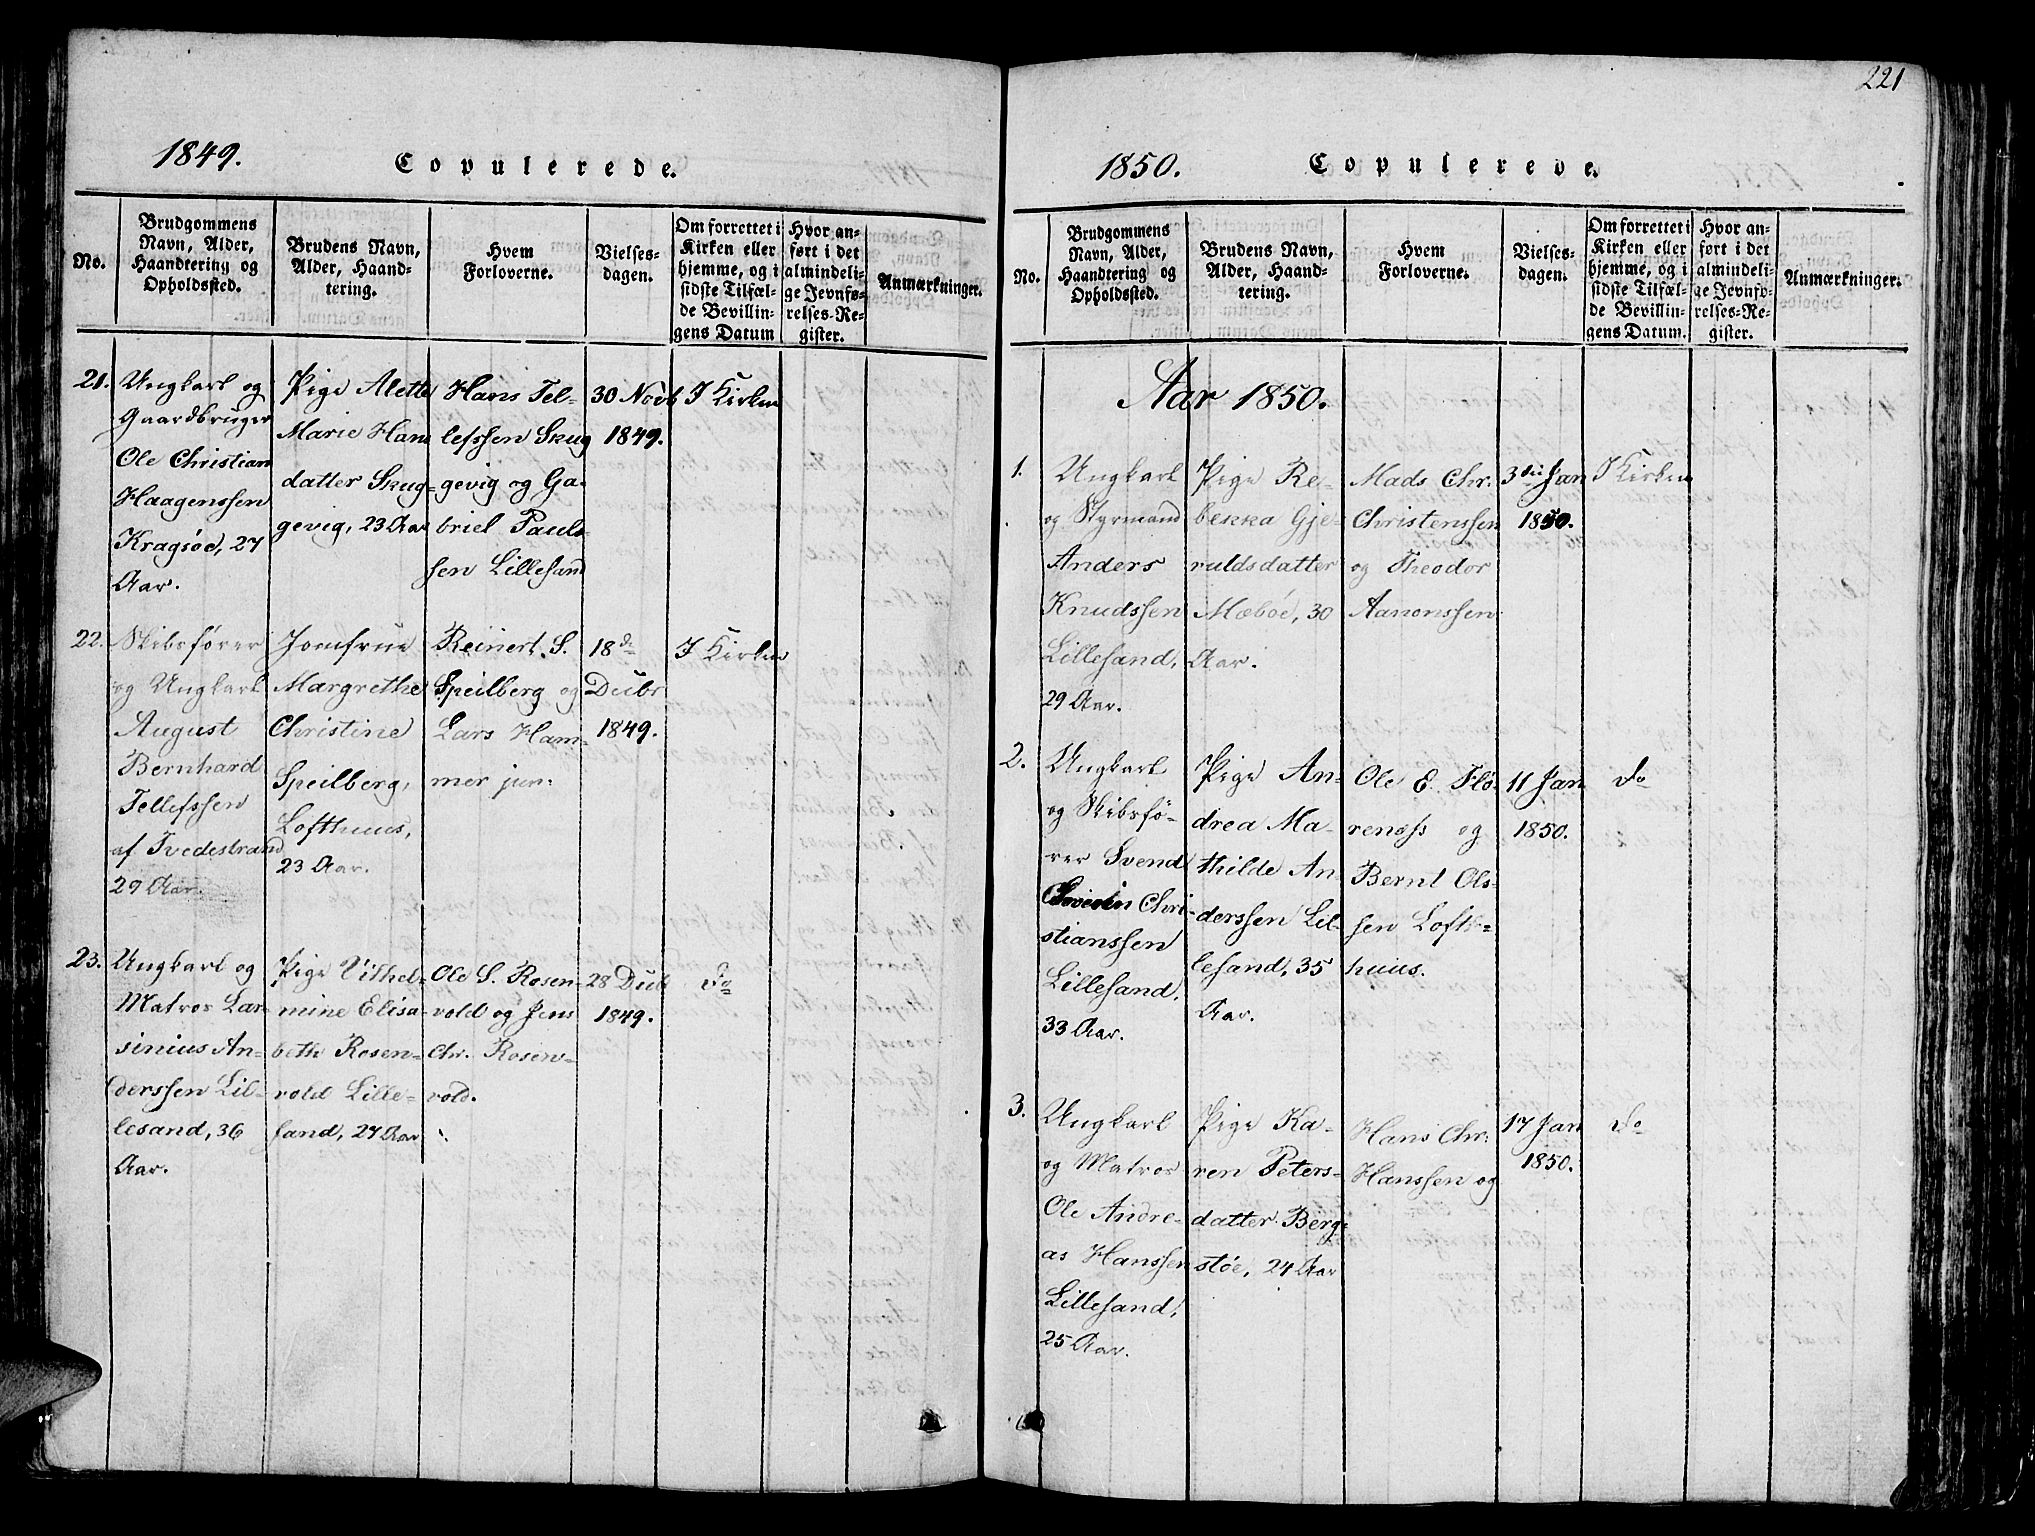 1849. Copulerede.
No.
Brudgommens
Navn, Alder,
Haandtering og
Opholdssted.
Brudens Navn,
Alder, Haand-
tering.
Hvem
Forloverne.
Vielses-
dagen.
Om forrettet i
Kirken eller
hjemme, og i
sidste Tilfæl-
de Bevillin-
gens Datum
Hvor an-
ført i det
almindeli-
ge Jevnfø-
relses-Re-
gister.
Anmærkninger.
21.
Ungkarl og
Gaardbruger
Ole Christian
Haagenssen
Kragsøe, 27
Aar.
Pige Alette
Marie Hans
datter Skug-
gevig, 23 Aar
Hans Tel-
lefssen Skug
gevig og Ga-
briel Pauls-
sen Lillesand
30 Novb
1849.
I Kirken
22.
Skibsfører
og Ungkarl
August
Bernhard
Tellefssen
af Tvedestrand
29 Aar.
Jomfrue
Margrethe
Christine
Speilberg,
Lofthuus,
23 Aar.
Reinert S.
Speilberg og
Lars Ham-
mer jun:
18d
Decbr
1849.
I Kirken
23.
Ungkarl og
Matros Lar-
sinius An-
derssen Lil-
lesand, 36
Aar.
Pige Vilhel-
mine Elisa-
beth Rosen-
vold Lille-
sand, 27 Aar
Ole S. Rosen-
vold og Jens
Chr. Rosen-
vold.
28 Decb
1849.
do
221
1850. Copulerede.
No.
Brudgommens
Navn, Alder,
Haandtering og
Opholdssted.
Brudens Navn,
Alder, Haand-
tering.
Hvem
Forloverne.
Vielses-
dagen.
Om forrettet i
Kirken eller
hjemme, og i
sidste Tilfæl-
de Bevillin-
gens Datum.
Hvor an-
ført i det
almindeli-
ge Jevnfø-
relses-Re-
gister.
Anmærkninger.
Aar 1850.
1.
Ungkarl
og Styrmand
Anders
Knudssen
Lillesand,
29 Aar.
Pige Re-
bekka Gje-
ruldsdatter
Mæbøe, 30
Aar.
Mads Chr.
Christenssen
og Theodor
Aanonssen
3die Jan
1850.
I Kirken
2.
Ungkarl
og Skibsfø-
rer Svend
Severin Chri-
stianssen
Lillesand,
33 Aar.
Pige An-
drea Ma-
thilde An-
derssen Lil-
lesand, 35
Aar.
Ole E. Flø-
renæss og
Bernt Ols-
sen Loft-
huus.
11 Jan
1850.
do
3.
Ungkarl
og Matros
Ole Andre-
as Hanssen
Lillesand,
25 Aar.
Pige Ka-
ren Peters-
datter Berg-
støe, 24 Aar
Hans Chr.
Hanssen og
17 Jan
1850.
do